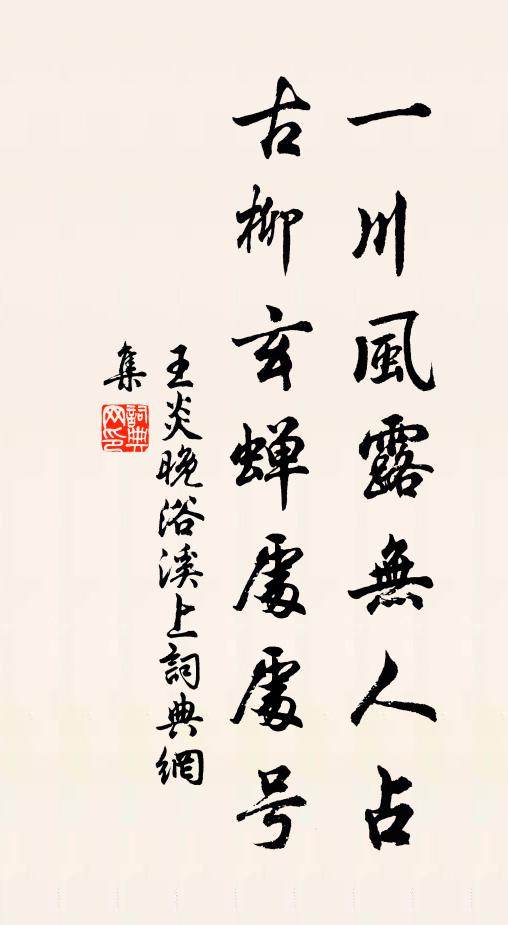 一川風露無人占
古柳玄蝉處處号
王炎晚浴溪上詞典網
集
詞典網印